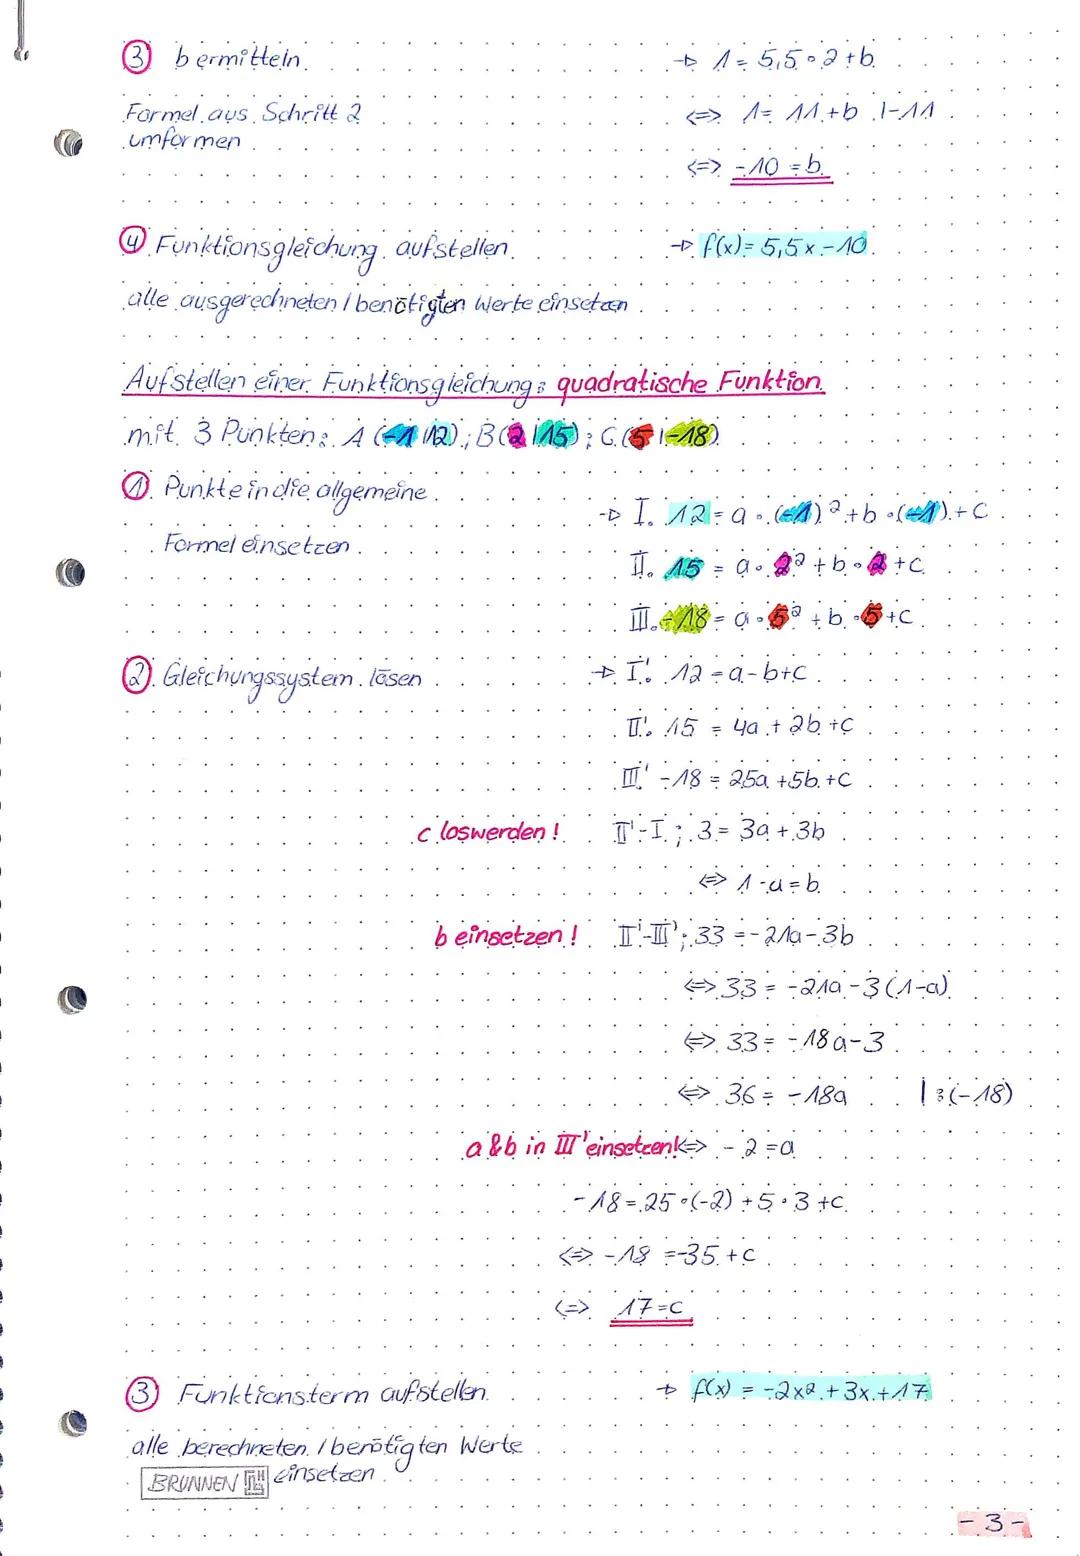 ③ b ermitteln. → 1 = 5,5 · 2 + b
Formel aus Schritt 2 <=> 1 = 11 + b |-11
umformen
<=> -10 = b
④ Funktionsgleichung aufstellen → f(x) = 5,5x - 10
alle ausgerechneten / benötigten Werte einsetzen
Aufstellen einer Funktionsgleichung: quadratische Funktion
mit 3 Punkten: A (-1|12); B (2|15); C (5|-18)
① Punkte in die allgemeine → I. 12 = a · (-1)² + b · (-1) + c
Formel einsetzen
II. 15 = a · 2² + b · 2 + c
III. -18 = a · 5² + b · 5 + c
② Gleichungssystem lösen → I'. 12 = a - b + c
II'. 15 = 4a + 2b + c
III' -18 = 25a + 5b + c
c loswerden! II'-I; 3 = 3a + 3b
<=> 1 - a = b
b einsetzen! II'-III'; 33 = -21a - 3b
<=> 33 = -21a - 3(1-a)
<=> 33 = -18a - 3
<=> 36 = -18a | :(-18)
a & b in III' einsetzen! <=> -2 = a
-18 = 25 · (-2) + 5 · 3 + c
<=> -18 = -35 + c
<=> 17 = c
③ Funktionsterm aufstellen → f(x) = -2x² + 3x + 17
alle berechneten / benötigten Werte
BRUNNEN einsetzen
- 3 -